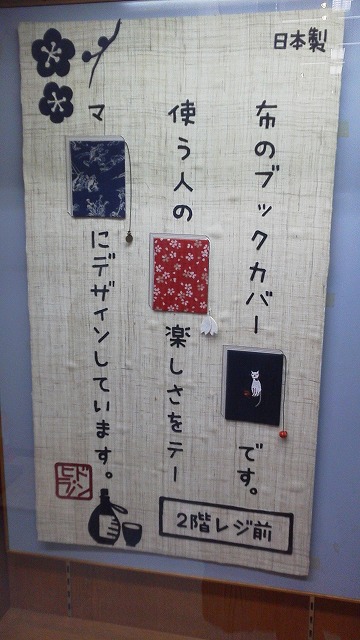 日本製
布のブックカバー です。
使う人の 楽しさをテー
マ にデザインしています。
2階レジ前